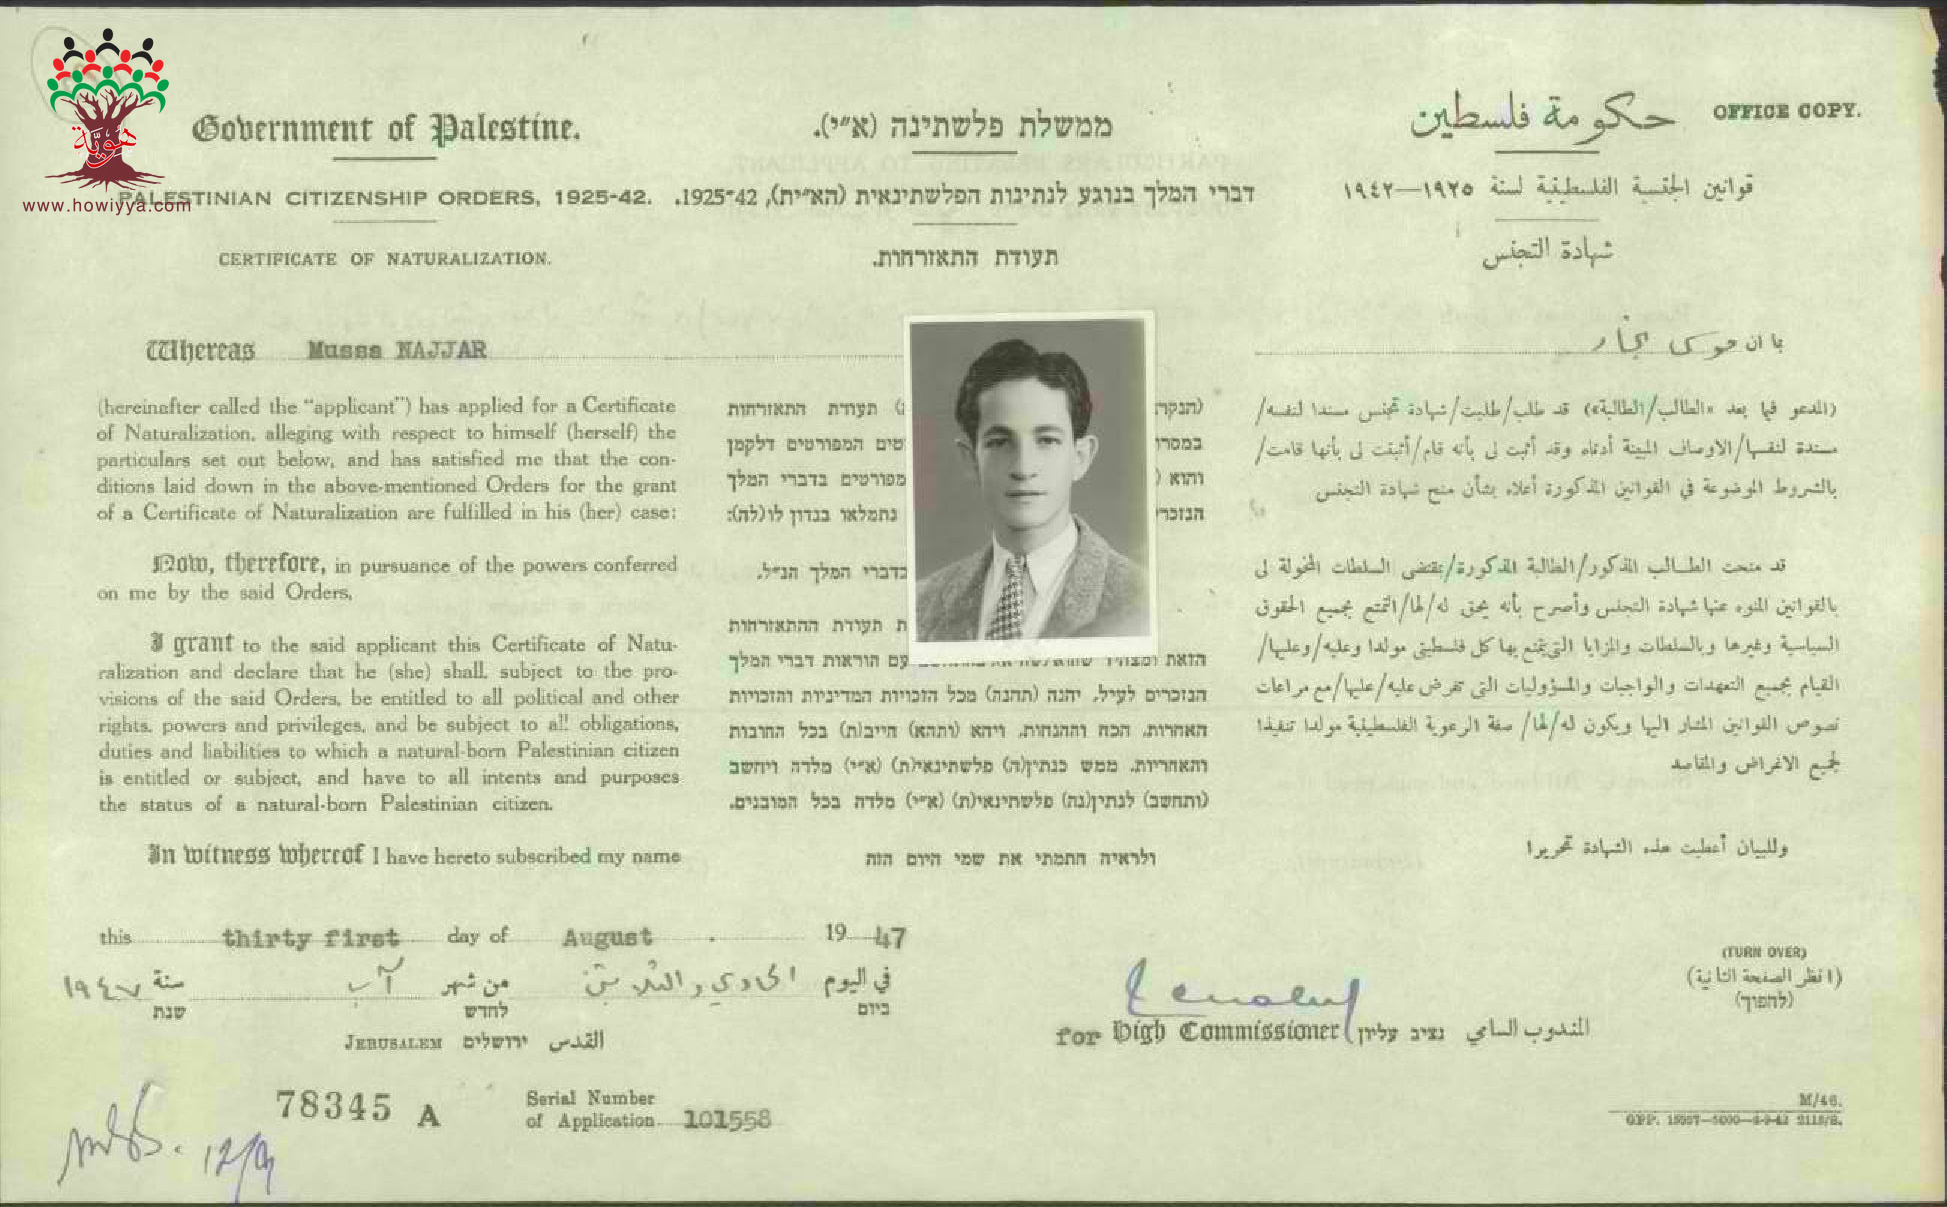 هوية
www.howiyya.com
OFFICE COPY.
Government of Palestine.
PALESTINIAN CITIZENSHIP ORDERS, 1925-42.
CERTIFICATE OF NATURALIZATION.
ממשלת פלשתינה (א״י).
דברי המלך בנוגע לנתינות הפלשתינאית (הא״ית), 1925-42.
תעודת התאזרחות.
حكومة فلسطين
قوانين الجنسية الفلسطينية لسنة ١٩٢٥—١٩٤٢
شهادة التجنس
Whereas Mussa NAJJAR
(hereinafter called the "applicant") has applied for a Certificate
of Naturalization, alleging with respect to himself (herself) the
particulars set out below, and has satisfied me that the con-
ditions laid down in the above-mentioned Orders for the grant
of a Certificate of Naturalization are fulfilled in his (her) case:
Now, therefore, in pursuance of the powers conferred
on me by the said Orders,
I grant to the said applicant this Certificate of Natu-
ralization and declare that he (she) shall, subject to the pro-
visions of the said Orders, be entitled to all political and other
rights, powers and privileges, and be subject to all obligations,
duties and liabilities to which a natural-born Palestinian citizen
is entitled or subject, and have to all intents and purposes
the status of a natural-born Palestinian citizen.
In witness whereof I have hereto subscribed my name
(הנקר תעודת התאזרחות
במסרו טים המפורטים דלקמן
והוא מפורטים בדברי המלך
הנזכר נתמלאו בנדון לו(לה):
בדברי המלך הנ״ל.
ת תעודת ההתאזרחות
הזאת עם הוראות דברי המלך
הנזכרים לעיל, יהנה (תהנה) מכל הזכויות המדיניות והזכויות
האחרות, הכח וההנחות, ויהא (ותהא) חייב(ת) בכל החובות
והאחריות, ממש כנתין(ה) פלשתינאי(ת) (א״י) מלדה ויחשב
(ותחשב) לנתין(נה) פלשתינאי(ת) (א״י) מלדה בכל המובנים.
ולראיה חתמתי את שמי היום הזה
بما ان موسى نجار
(المدعو فيما بعد «الطالب/الطالبة») قد طلب/طلبت/شهادة تجنس مسندا لنفسه/
مسندة لنفسها/الاوصاف المبينة أدناه وقد أثبت لى بأنه قام/أثبتت لى بأنها قامت/
بالشروط الموضوعة في القوانين المذكورة أعلاه بشأن منح شهادة التجنس
قد منحت الطالب المذكور/الطالبة المذكورة/بمقتضى السلطات المخولة لى
بالقوانين المنوه عنها شهادة التجنس وأصرح بأنه يحق له/لها/التمتع بجميع الحقوق
السياسية وغيرها وبالسلطات والمزايا التي يتمتع بها كل فلسطينى مولدا وعليه/وعليها/
القيام بجميع التعهدات والواجبات والمسؤوليات التى تفرض عليه/عليها/مع مراعات
نصوص القوانين المشار اليها ويكون له/لها/ صفة الرعوية الفلسطينية مولدا تنفيذا
لجميع الاغراض والمقاصد
وللبيان أعطيت هذه الشهادة تحريرا
this thirty first day of August 19 47
في اليوم الحادي والثلاثين من شهر آب سنة ١٩٤٧
ביום לחדש שנת
JERUSALEM ירושלים القدس
for High Commissioner נציב עליון المندوب السامي
(TURN OVER)
(انظر الصفحة الثانية)
(להפוך)
78345 A
Serial Number
of Application 101558
12/9
M/46.
GPP. 15957—5000—4-9-42 2118/S.